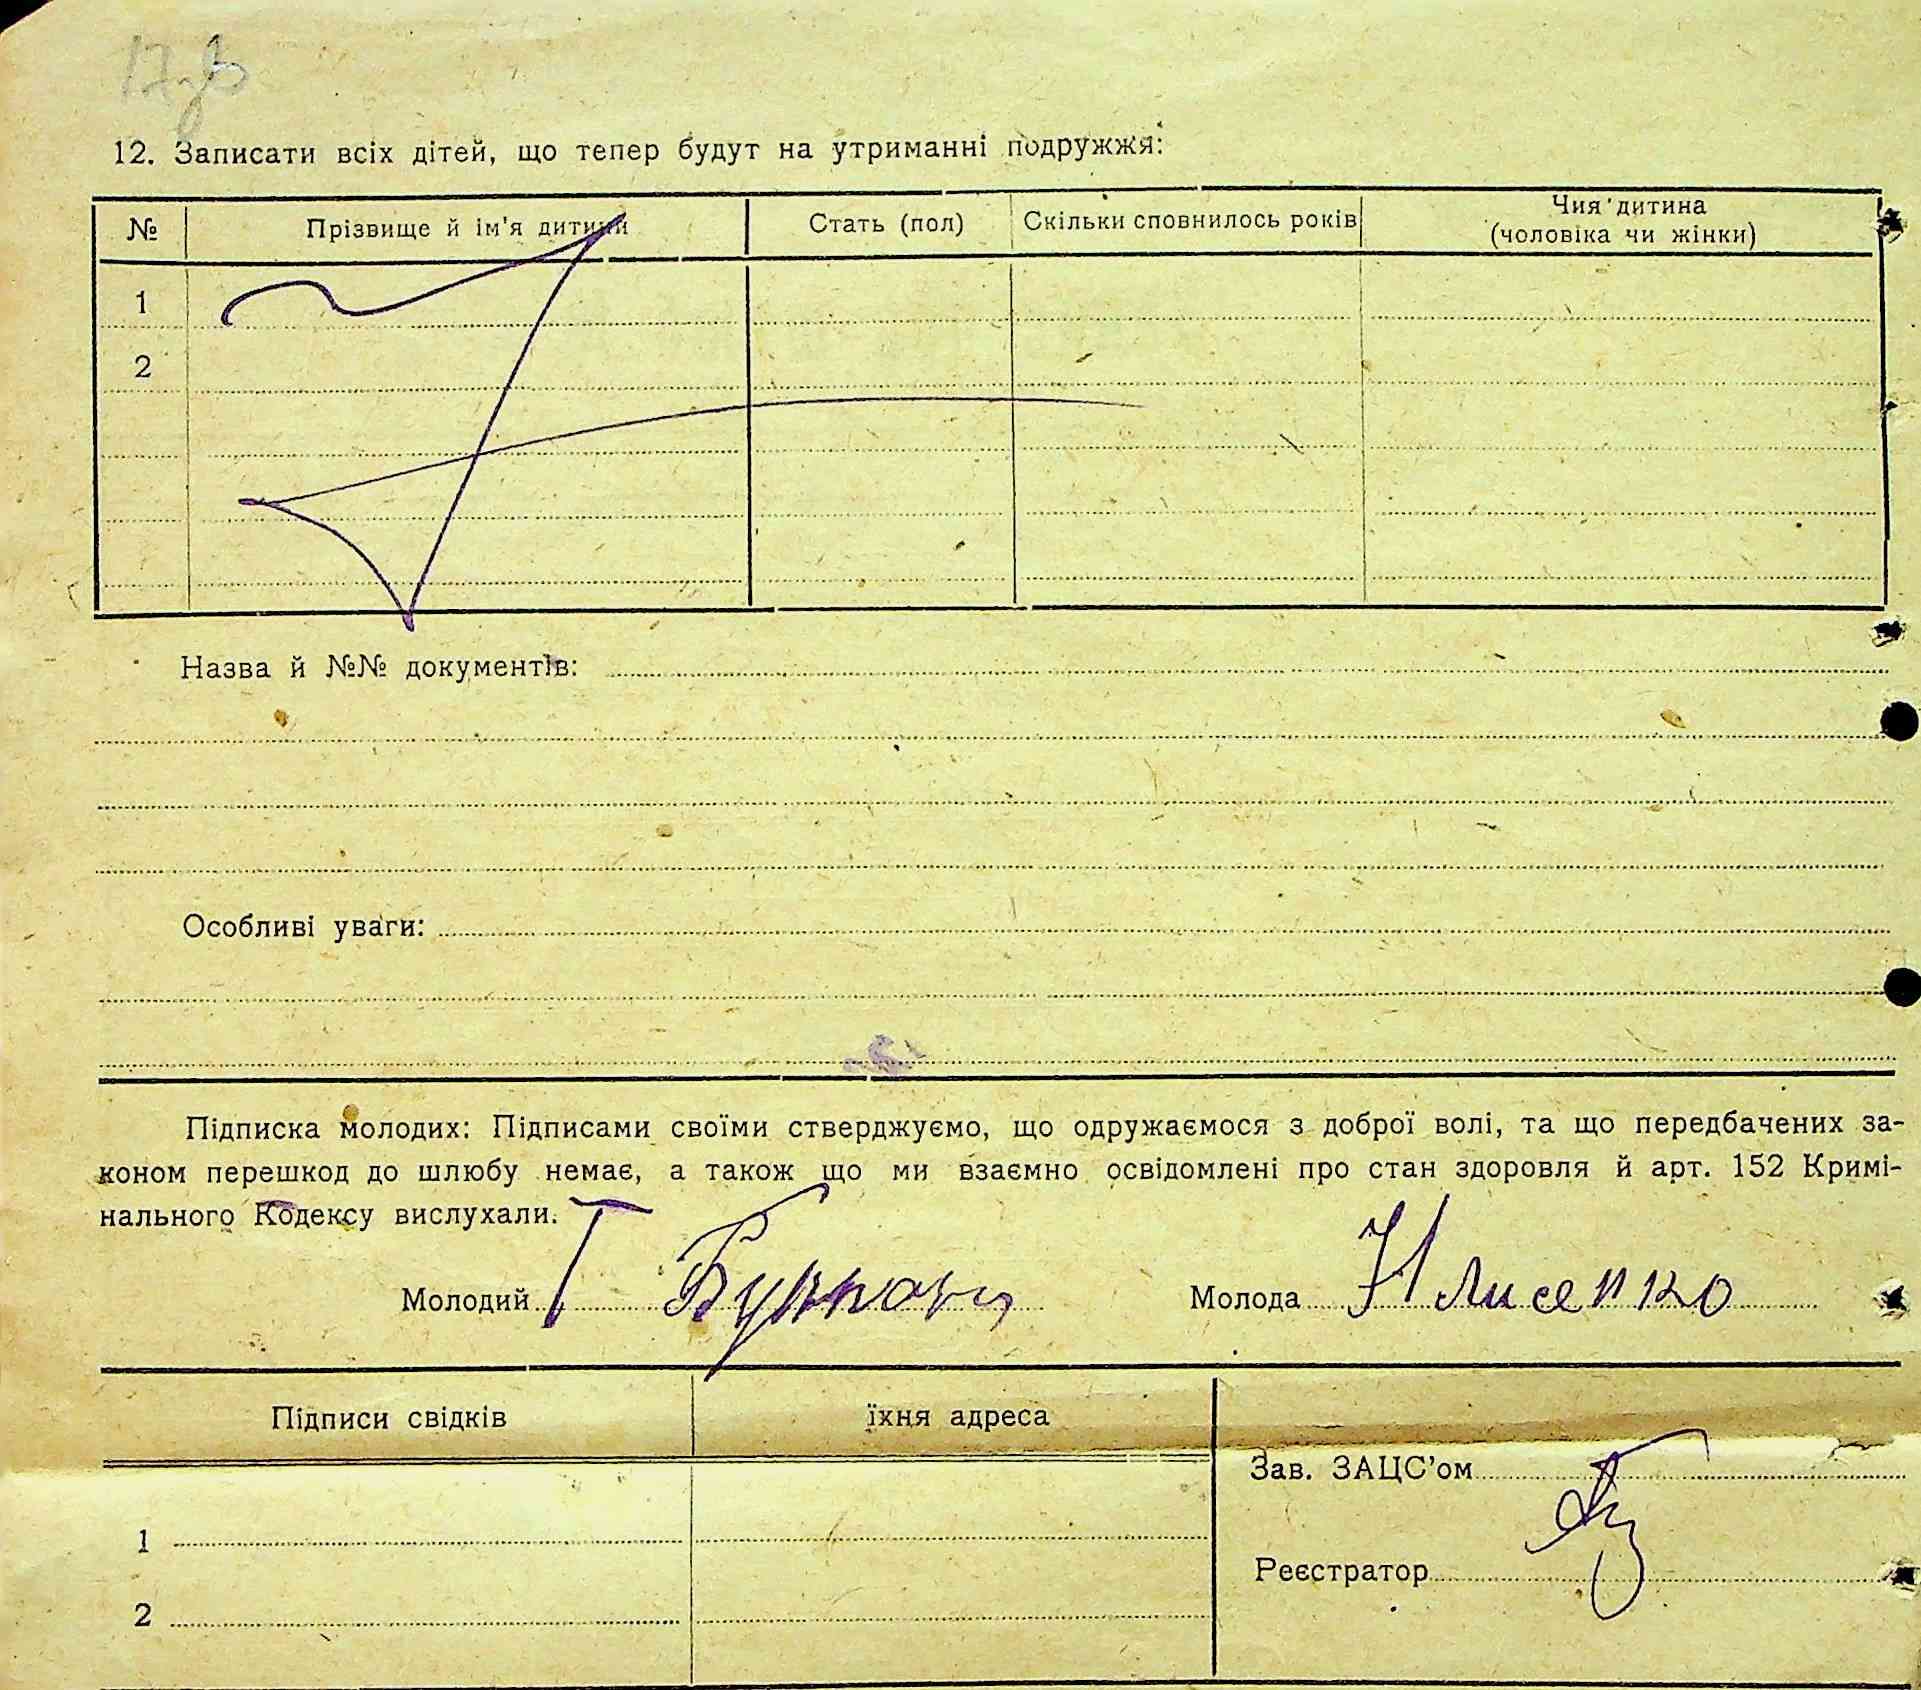 12. Записати всіх дітей, що тепер будут на утриманні подружжя:
№ Прізвище й ім'я дитини Стать (пол) Скільки сповнилось років Чия дитина (чоловіка чи жінки)
1
2
Назва й №№ документів:
Особливі уваги:
Підписка молодих: Підписами своїми стверджуємо, що одружаємося з доброї волі, та що передбачених за-
коном перешкод до шлюбу немає, а також що ми взаємно освідомлені про стан здоровля й арт. 152 Кримі-
нального Кодексу вислухали.
Молодий Г Молода Н Лисенко
Підписи свідків їхня адреса
Зав. ЗАЦС'ом
1
Реєстратор
2